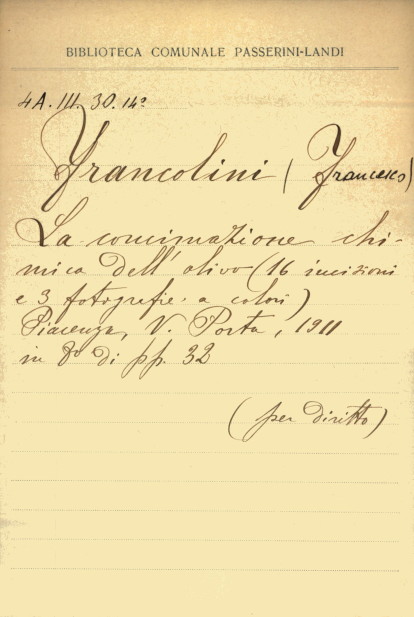 BIBLIOTECA COMUNALE PASSERINI-LANDI
4A. III. 30. 14º
Francolini (Francesco)
La concimazione chi-
mica dell'olivo (16 incisioni
e 3 fotografie a colori)
Piacenza, V. Porta, 1911
in 8º di pp. 32
(per diritto)